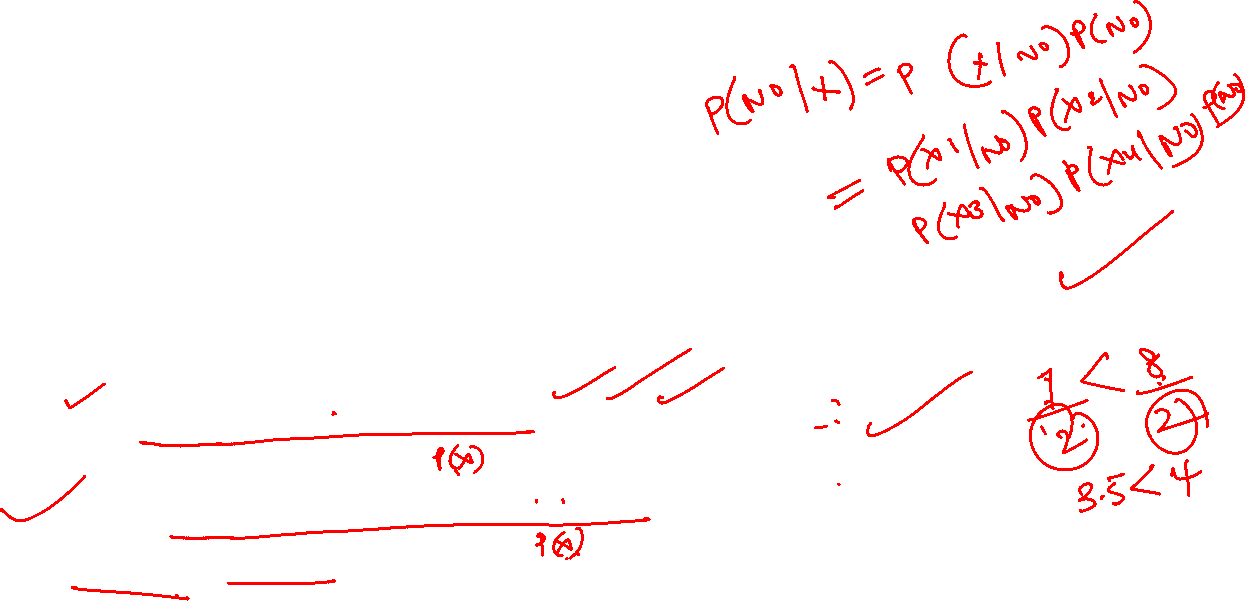 P(NO|X) = P (X|NO) P(NO)
= P(X1|NO) P(X2|NO)
P(X3|NO) P(X4|NO) P(NO)
7/2 < 8/2
3.5 < 4
P(X)
P(X)